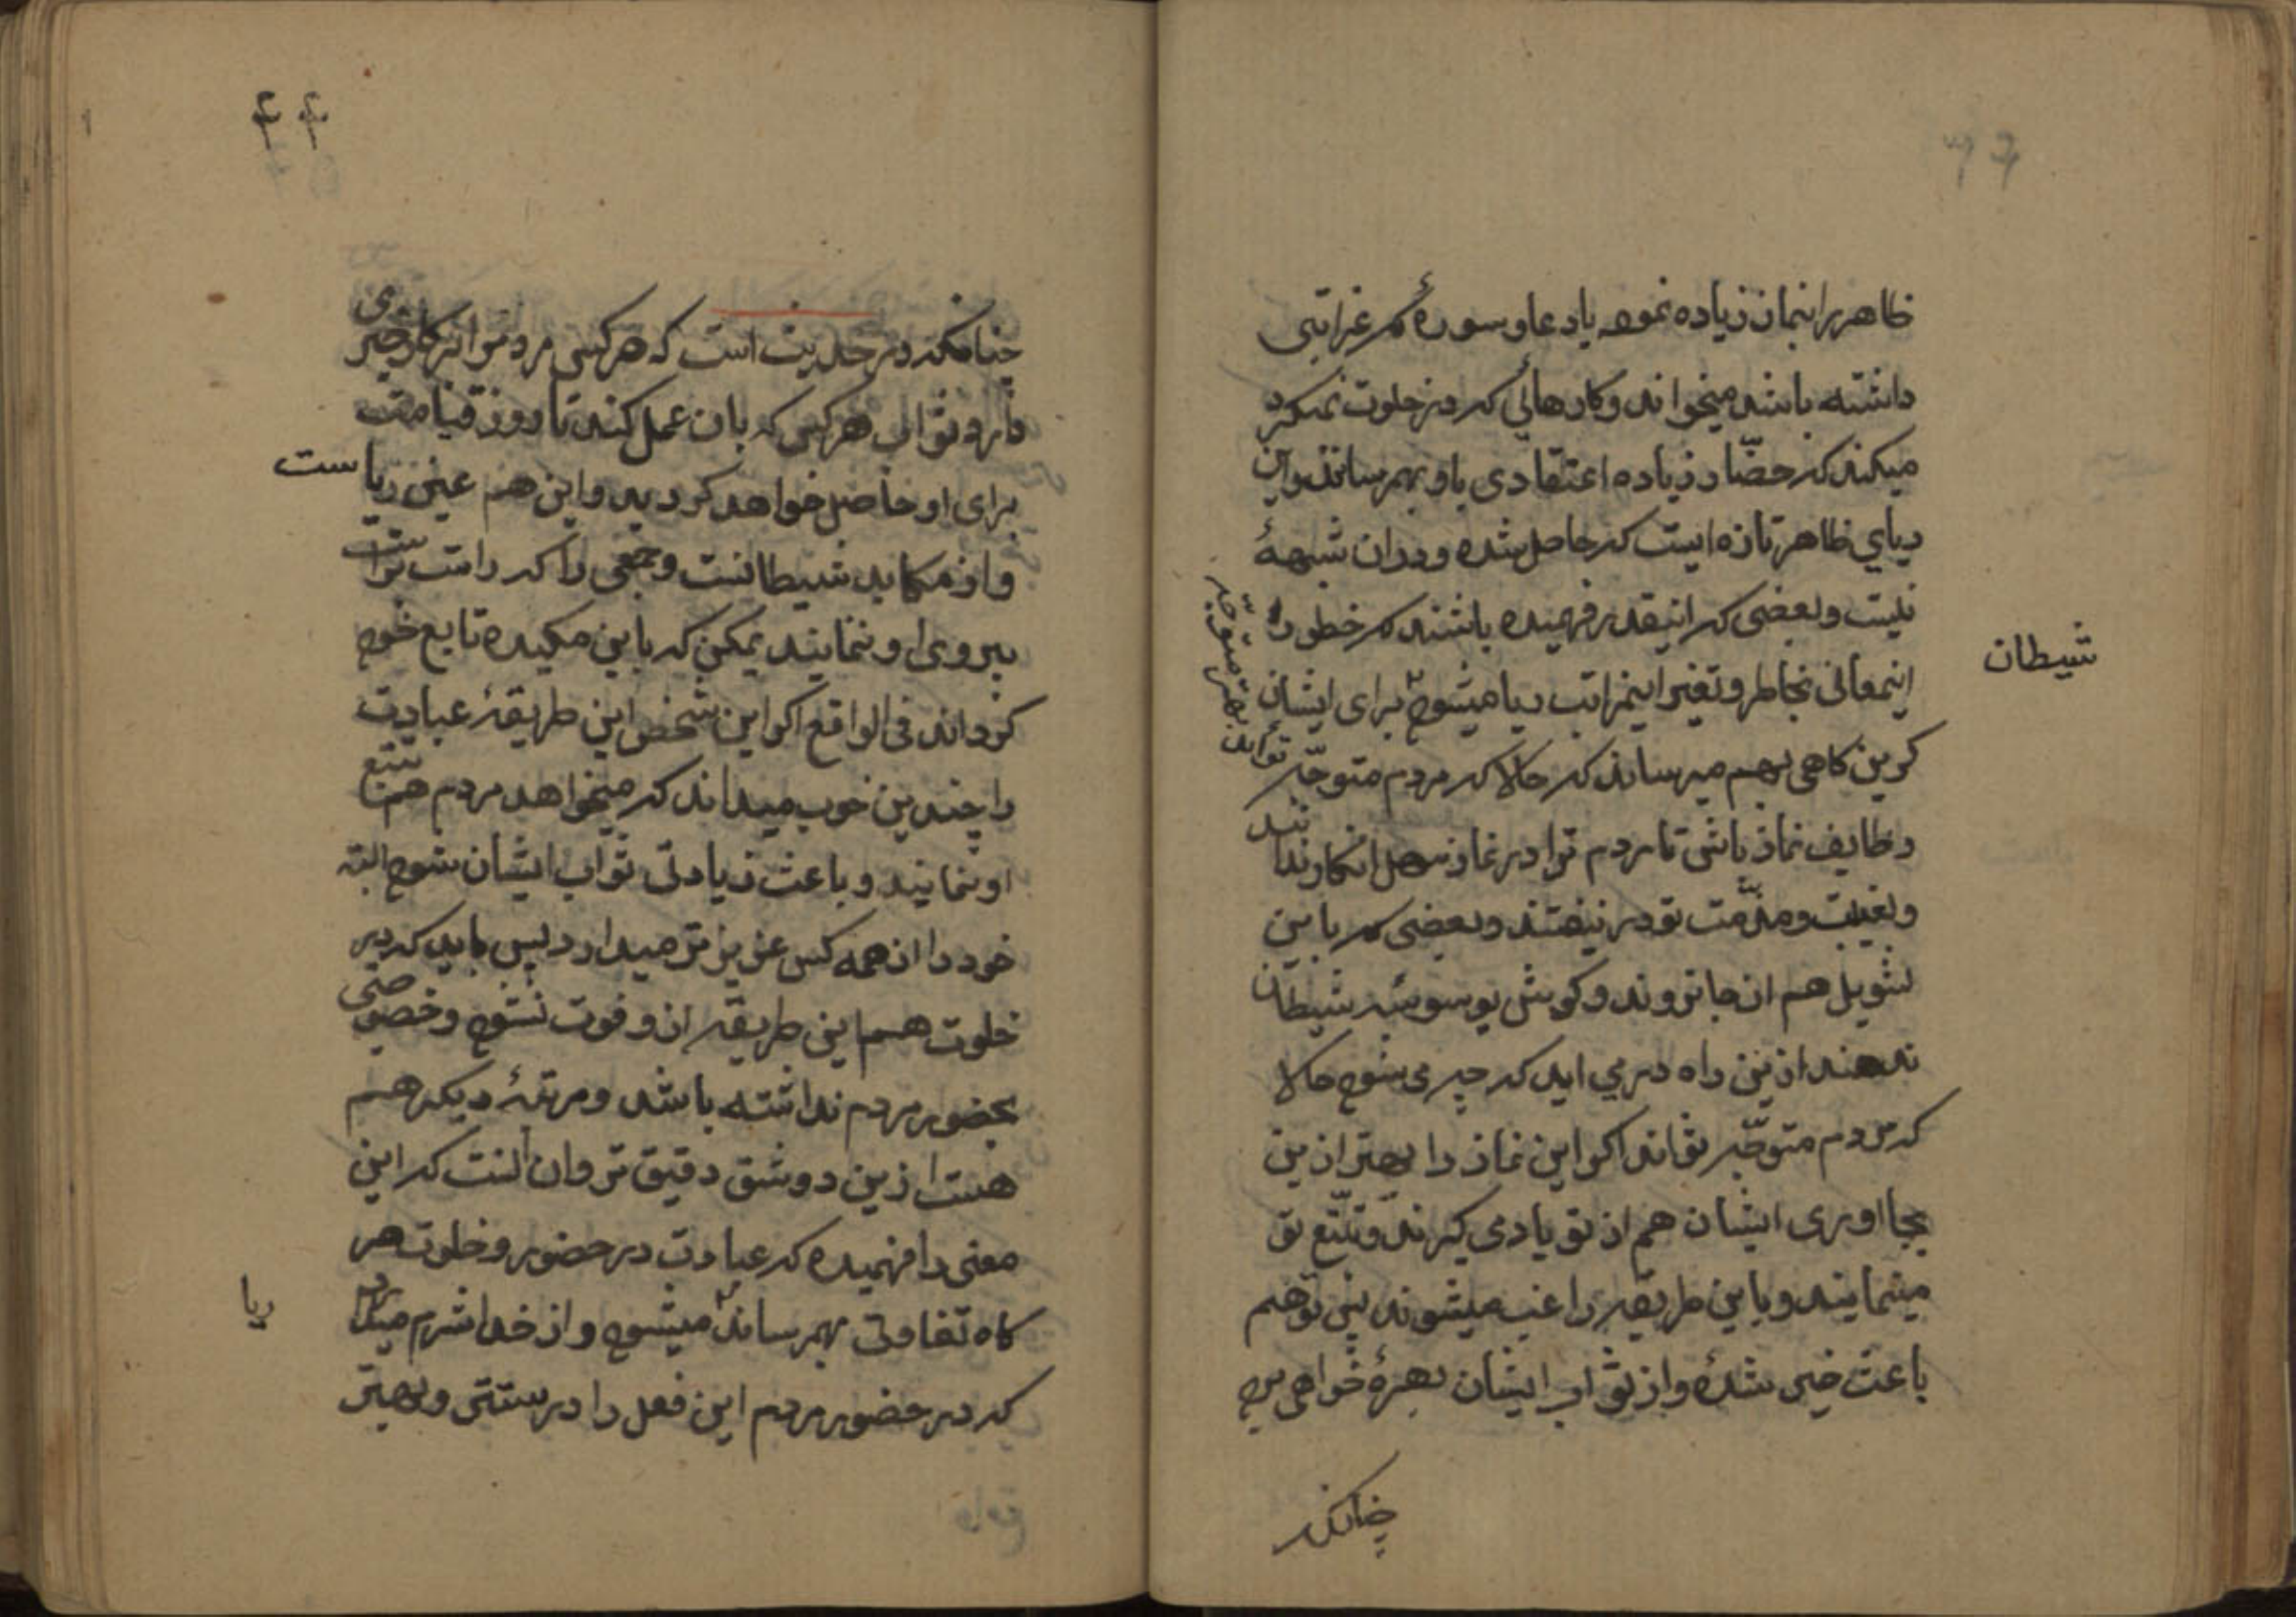 ظاهر را نمان زیاده نموده یا دعا و سورهٔ که غرابتی
داشته باشد میخواند و کارهائی که در خلوت نمیکرد
میکند که حضّار زیاده اعتقادی باو بهم رسانند و این
ریای ظاهر تازه ایست که حاصل شده و در ان شبههٔ
نیست و بعضی که اینقدر فهمیده باشند که خطور
اینمعانی بخاطر و تغیر اینمراتب ریا میشود برای ایشان شیطان
کرین کاهی بهم میرساند که حالا که مردم متوجّه تواند بهتر متوجه
وظایف نماز باشی تا مردم ترا در نماز سهل انکار ندانند
و بغیبت و مذمّت تو در نیفتند و بعضی که باین
تسویل هم از جا نروند و کوش بوسوسهٔ شیطان
ندهند ازین راه در می اید که چه می شود حالا
که مردم متوجّه تواند اکر این نماز را بهتر ازین
بجا اوری ایشان هم از تو یاد می کیرند و تتبّع تو
مینمایند و باین طریقه راغب میشوند پس تو هم
باعث خیر شدهٔ و از ثواب ایشان بهرهٔ خواهی برد
چنانکه
۴۴
چنانکه در حدیث است که هر کس مردم را بر کار خیری
دارد ثواب هر کس که بان عمل کند تا روز قیامت
برای او حاصل خواهد کردید و این هم عین ریاست
و از مکاید شیطانست و جمعی را که راست
پیروی او ننمایند یمکن که باین مکیده تابع خود
کرداند فی الواقع اکر این شخص این طریقهٔ عبادت
را چندین خوب میداند که میخواهد مردم هم تتبع
او نمایند و باعث زیادتی ثواب ایشان شود البته
خود را از همه کس عزیز تر میدارد پس باید که در
خلوت هم این طریقه از و فوت نشود و خصوصی
بحضور مردم نداشته باشد و مرتبهٔ دیکر هم
هست ازین دو شق دقیق تر و ان انست که این
معنی را فهمیده که عبادت در حضور و خلوت هر
کاه تفاوتی بهم رساند ریا میشود و از خدا شرم میدارد
که در حضور مردم این فعل را درستتر و بهتر